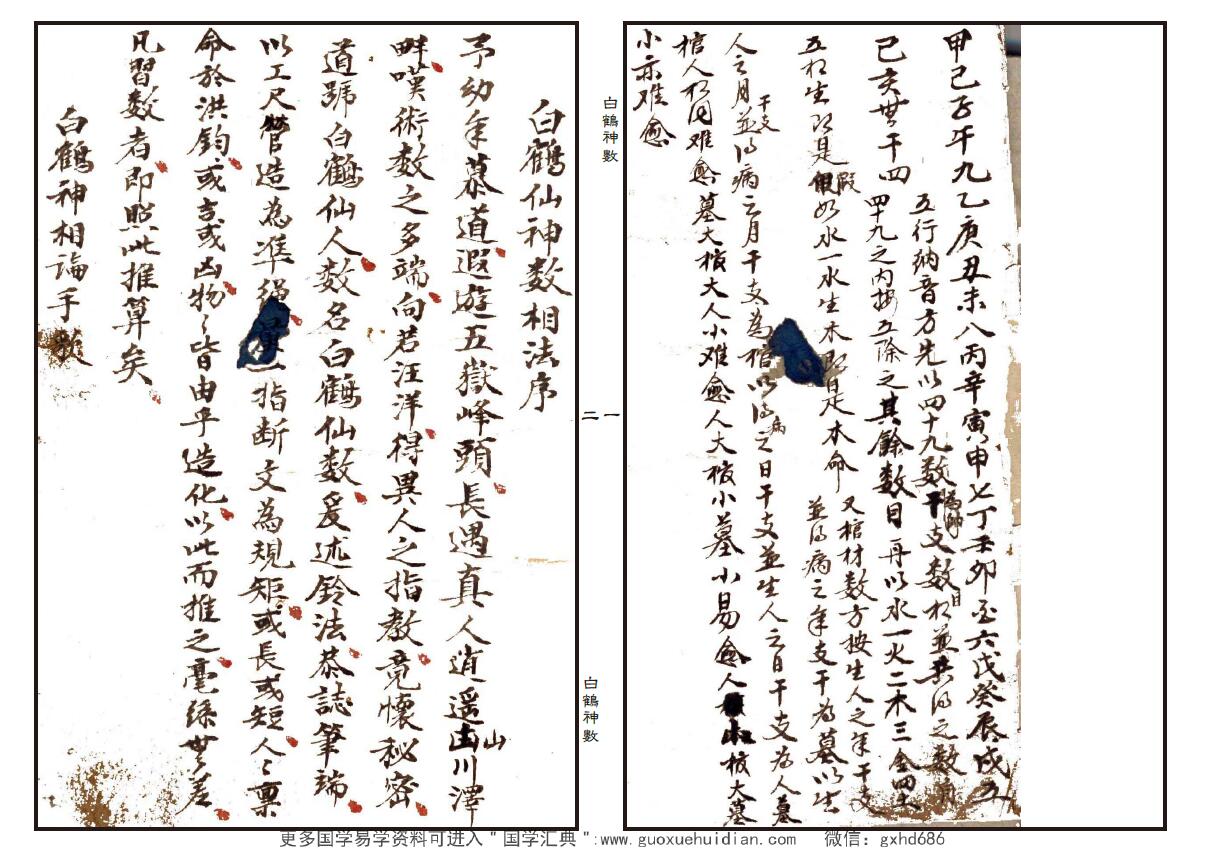 甲己子午九乙庚丑未八丙辛寅申七丁壬卯酉六戊癸辰戌五
己亥無干四
五行納音方先以四十九數干支數目相並共得之數
為帥
四十九之内按五除之其餘數目再以水一火二木三金四土
五相生即是假如水一水生木即是木命
又棺材数方按生人之年干支
並得病之年支干為墓以生
人之月並得病之月干支為棺以得病之日干支並生人之日干支為人墓
干支
棺人相同难愈墓大棺大人小难愈人大棺小墓小易愈人棺大墓
小亦难愈
白鶴神數
一
二
白鶴神數
白鶴仙神数相法序
予幼年慕道遐遊五嶽峰頭長遇真人逍遥山川澤
畔嘆術数之多端向若汪洋得異人之指教竟懷秘密
道號白鶴仙人数名白鶴仙数爰述鈴法恭誌筆端
以工尺營造為准繩指断文為規矩或長或短人々禀
命於洪鈞或吉或凶物々皆由乎造化以此而推之毫絲無差
凡習数者即照此推算矣
白鶴神相論手
更多国学易学资料可进入＂国学汇典＂:www.guoxuehuidian.com 微信：gxhd686